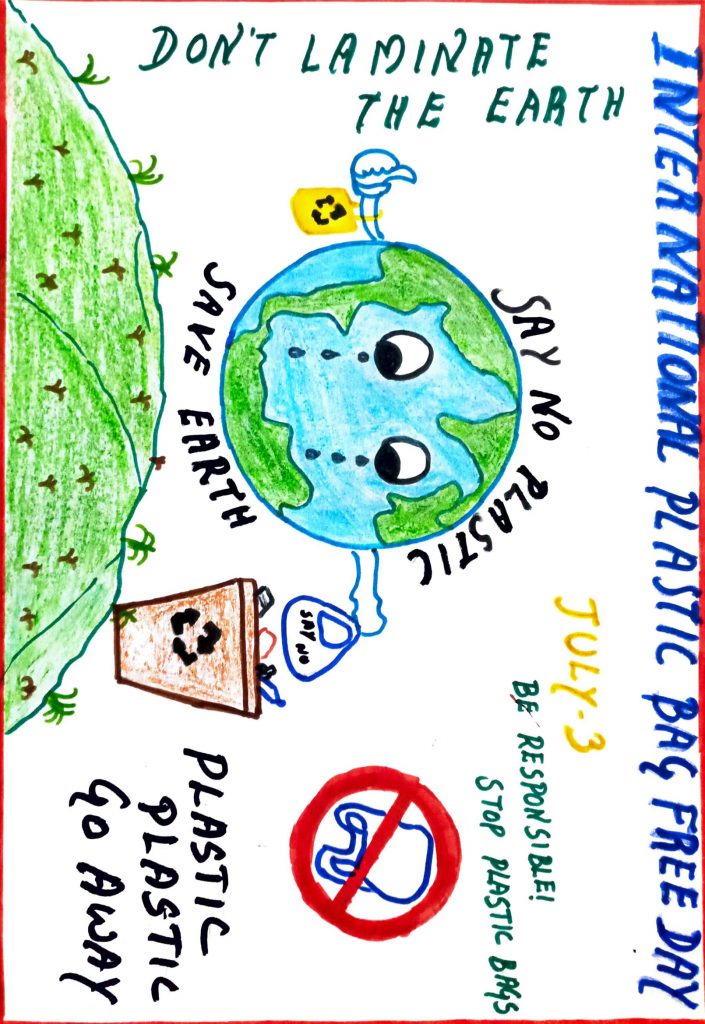 INTERNATIONAL PLASTIC BAG FREE DAY
DON'T LAMINATE
THE EARTH
JULY-3
BE RESPONSIBLE!
STOP PLASTIC BAGS
SAY NO PLASTIC
SAVE EARTH
SAY NO
PLASTIC
PLASTIC
GO AWAY